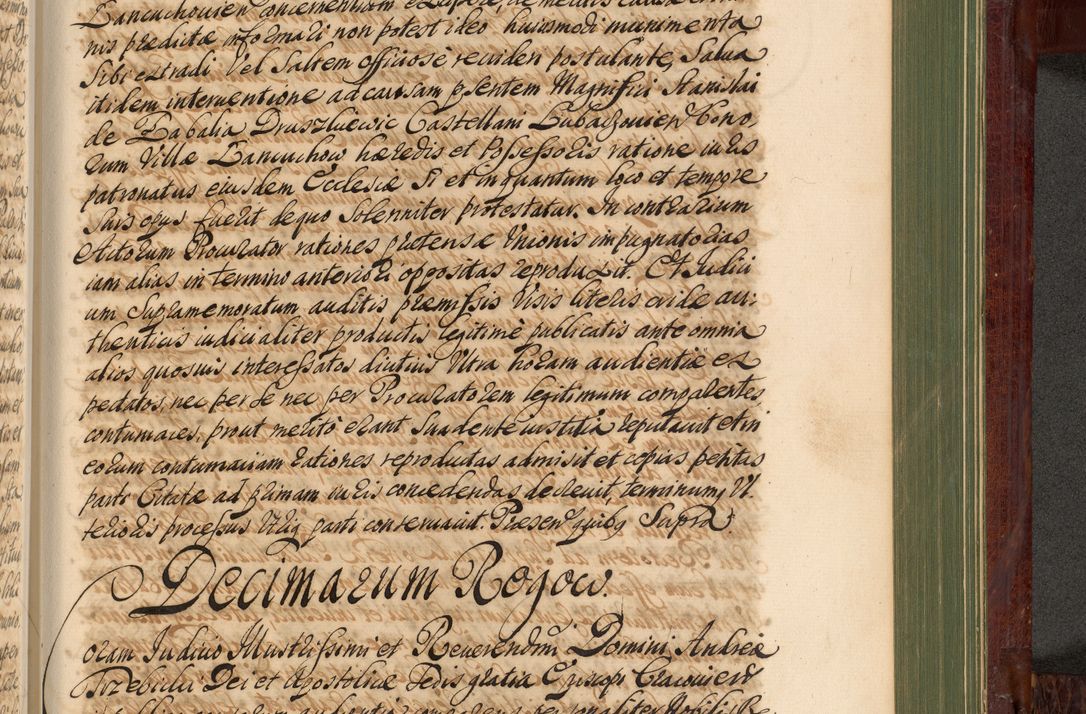 nis prædictæ informari non potest ideo huiusmodi munimenta
Sibi extradi Vel Saltem officiose reuideri postulante, Salua
itidem interuentione ad causam pñtem Magnifici Stanislai
de Zabalia Druszkiewic Castellani Lubaczouien bono
rum Villæ Lancuchow hæredis et Possessoris ratione iuris
patronatus eiusdem Ecclesiæ Si et in quantum loco et tempore
Juris opus fuerit de quo Solenniter protestatur. In contrarium
Actorum Procurator rationes prætensæ Vnionis impugnatorias
iam alias in termino anteriori oppositas reproduxit. Et Iudici
um Supramemoratum auditis præmissis Visis literis
thenticis iudicialiter productis legitime publicatis ante omnia
alios quosuis interessatos diutius Vltra horam audientiæ ex
pectatos, nec per Se nec per Procuratorem legitimum comparentes
contumaces, prout merito erant Suadente iustitia reputauit et in
eorum contumaciam rationes reproductas admisit et copias petitas
parti Citatæ ad primam iuris concedendas decreuit, terminum Vl
terioris processus Vtriq parti conseruauit. Præsen quibq Supra
Decimarum Rogow.
oram Iudicio Illustrissimi et Reuerendissimi Domini Andreæ
Trzebicki Dei et Apostolicæ Sedis gratia Episcopi Cracouien